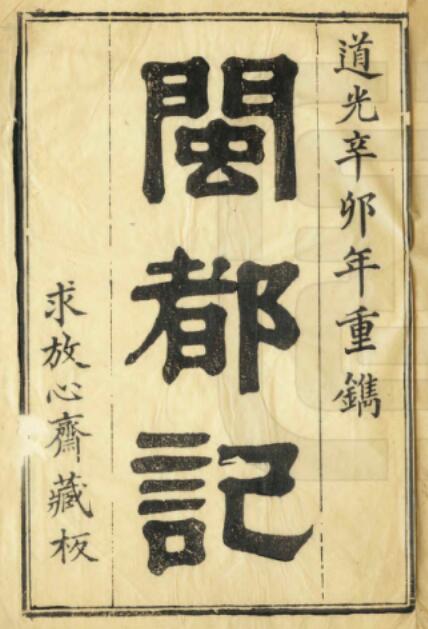 道光辛卯年重鐫
閩都記
求放心齋藏板